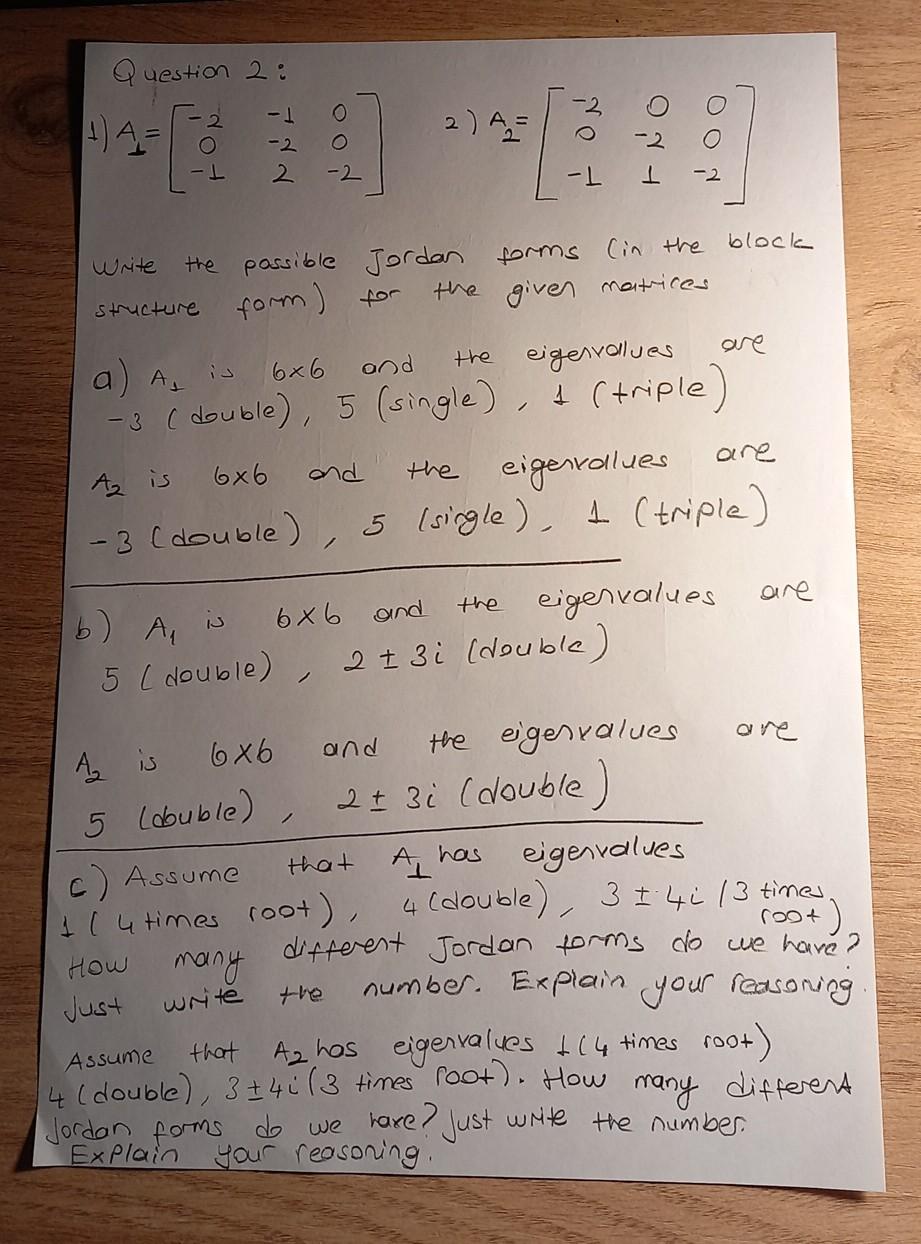 Question 2:
1) A₁= [-2 -1 0
0 -2 0
-1 2 -2]
2) A₂= [-2 0 0
0 -2 0
-1 1 -2]
Write the possible Jordan forms (in the block
structure form) for the given matrices
a) A₁ is 6x6 and the eigenvalues are
-3 (double), 5 (single), 1 (triple)
A₂ is 6x6 and the eigenvalues are
-3 (double), 5 (single), 1 (triple)
b) A₁ is 6x6 and the eigenvalues are
5 (double), 2 ± 3i (double)
A₂ is 6x6 and the eigenvalues are
5 (double), 2 ± 3i (double)
c) Assume that A₁ has eigenvalues
1 (4 times root), 4 (double), 3 ± 4i (3 times
root)
How many different Jordan forms do we have?
Just write the number. Explain your reasoning.
Assume that A₂ has eigenvalues 1 (4 times root)
4 (double), 3 ± 4i (3 times root). How many different
Jordan forms do we have? Just write the number.
Explain your reasoning.